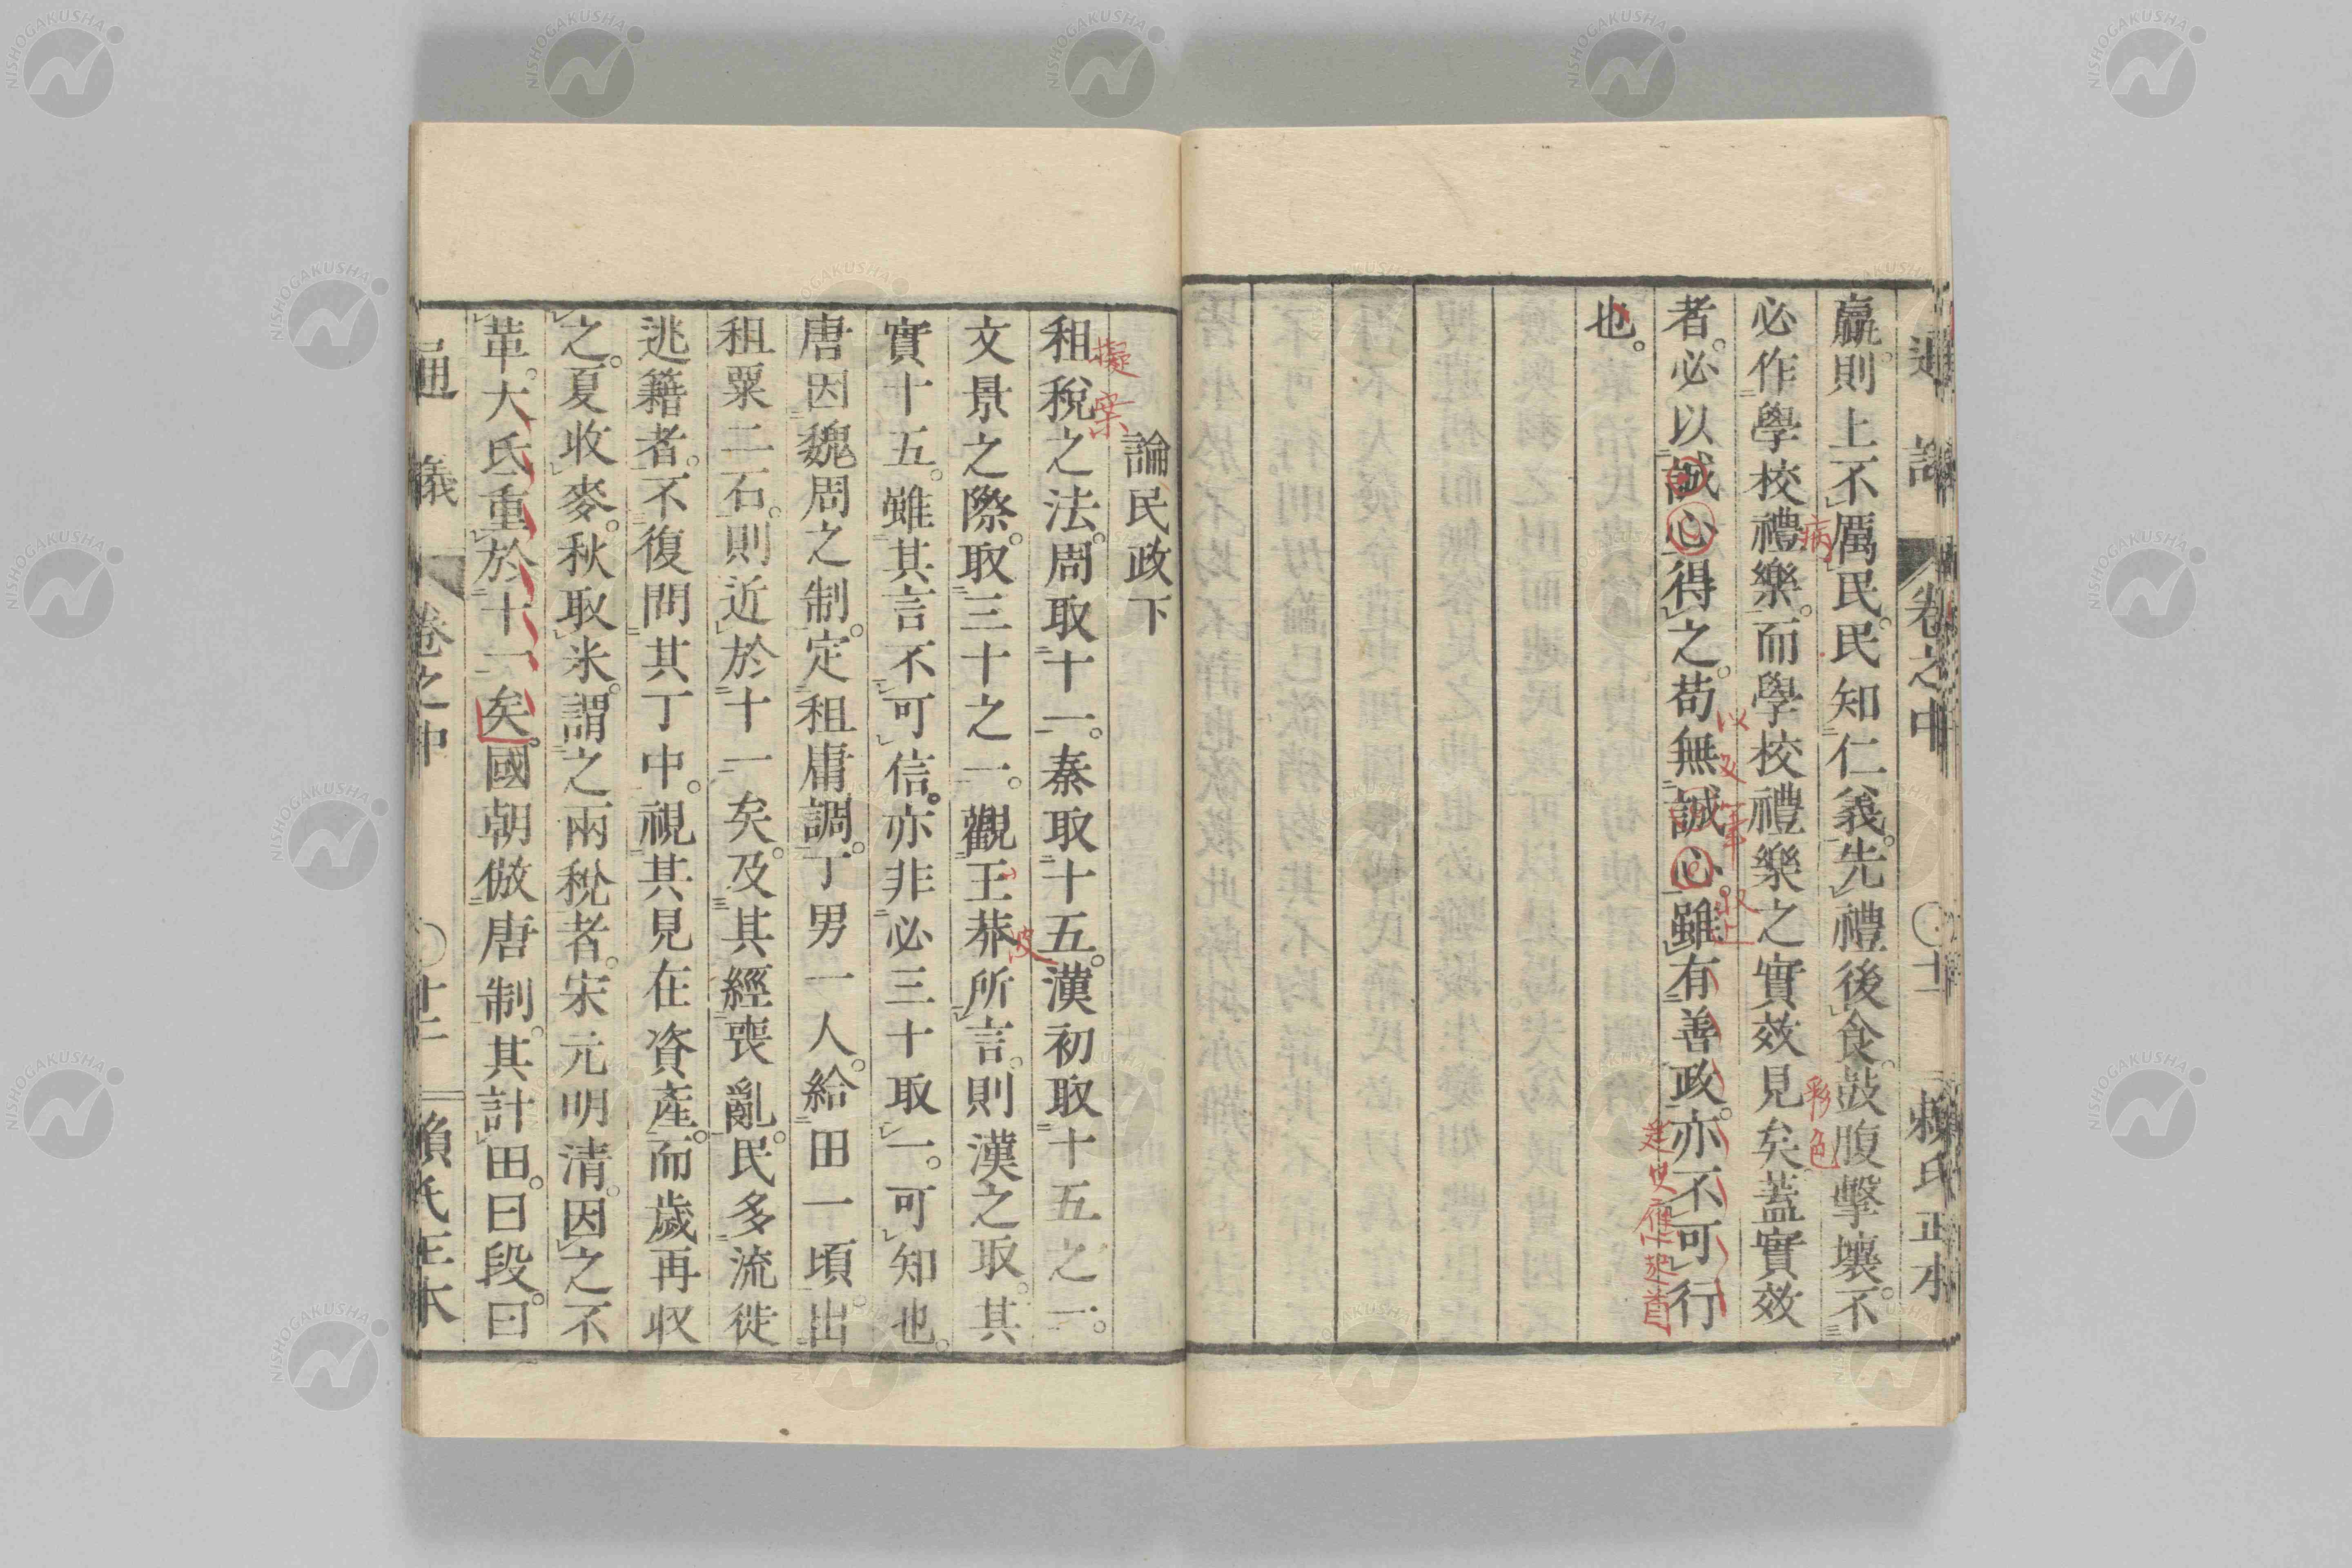 通議 卷之中 〇十一 賴氏正本
羸。則上不厲民。民知仁義。先禮後食。鼓腹擊壤。不
必作學校禮樂。而學校禮樂之實效見矣。蓋實效
者。必以誠心得之。苟無誠心。雖有善政。亦不可行
也。
病
彩色
以及筆收上
是也雁起首
論民政下
租稅之法。周取十一。秦取十五。漢初取十五之一。
文景之際。取三十之一。觀王莽所言。則漢之取。其
實十五。雖其言不可信。亦非必三十取一。可知也。
唐因魏周之制。定租庸調。丁男一人。給田一頃。出
租粟二石。則近於十一矣。及其經喪亂。民多流徙
逃籍者。不復問其丁中。視其見在資產。而歲再收
之。夏收麥。秋取米。謂之兩稅者。宋元明清。因之不
革。大氐重於十一矣。國朝倣唐制。其計田。曰段。曰
擬案
波
通議 卷之中 〇十二 賴氏正本
NISHOGAKUSHA